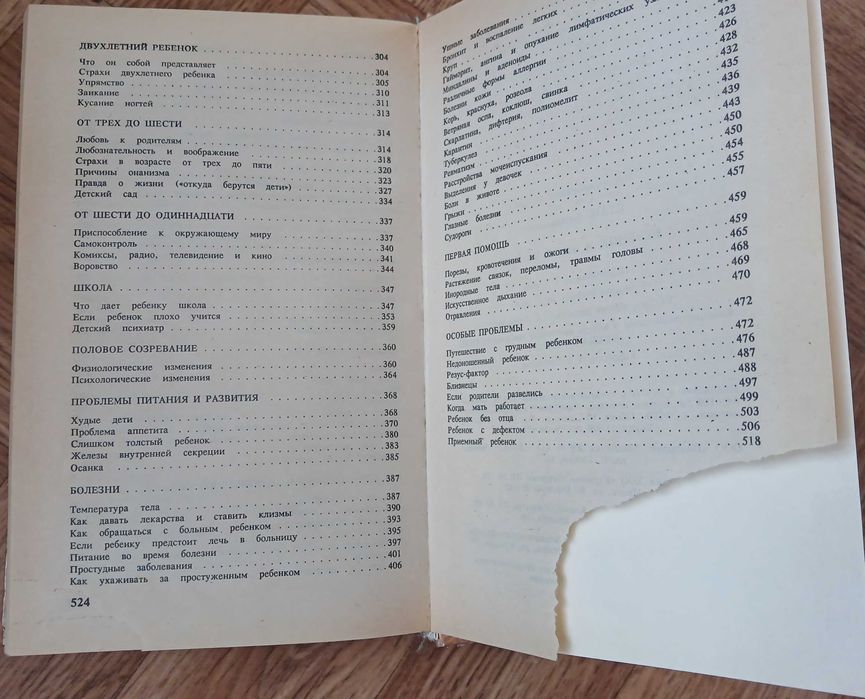 ДВУХЛЕТНИЙ РЕБЕНОК . . . 304
Что он собой представляет . . . 304
Страхи двухлетнего ребенка . . . 305
Упрямство . . . 310
Заикание . . . 311
Кусание ногтей . . . 313
ОТ ТРЕХ ДО ШЕСТИ . . . 314
Любовь к родителям . . . 314
Любознательность и воображение . . . 318
Страхи в возрасте от трех до пяти . . . 320
Причины онанизма . . . 323
Правда о жизни («откуда берутся дети») . . . 327
Детский сад . . . 334
ОТ ШЕСТИ ДО ОДИННАДЦАТИ . . . 337
Приспособление к окружающему миру . . . 337
Самоконтроль . . . 340
Комиксы, радио, телевидение и кино . . . 341
Воровство . . . 344
ШКОЛА . . . 347
Что дает ребенку школа . . . 347
Если ребенок плохо учится . . . 353
Детский психиатр . . . 359
ПОЛОВОЕ СОЗРЕВАНИЕ . . . 360
Физиологические изменения . . . 360
Психологические изменения . . . 364
ПРОБЛЕМЫ ПИТАНИЯ И РАЗВИТИЯ . . . 368
Худые дети . . . 368
Проблема аппетита . . . 370
Слишком толстый ребенок . . . 380
Железы внутренней секреции . . . 383
Осанка . . . 385
БОЛЕЗНИ . . . 387
Температура тела . . . 387
Как давать лекарства и ставить клизмы . . . 390
Как обращаться с больным ребенком . . . 393
Если ребенку предстоит лечь в больницу . . . 395
Питание во время болезни . . . 397
Простудные заболевания . . . 401
Как ухаживать за простуженным ребенком . . . 406
524
Ушные заболевания
Бронхит и воспаление легких
Круп
Гайморит, ангина и опухание лимфатических
Миндалины и аденоиды
Различные формы аллергии
Болезни кожи . . . 423
Корь, краснуха, розеола . . . 426
Ветряная оспа, коклюш, свинка . . . 428
Скарлатина, дифтерия, полиомелит . . . 432
Карантин . . . 435
Туберкулез . . . 436
Ревматизм . . . 439
Расстройства мочеиспускания . . . 443
Выделения у девочек . . . 450
Боли в животе . . . 450
Грыжи . . . 454
Глазные болезни . . . 455
Судороги . . . 457
ПЕРВАЯ ПОМОЩЬ . . . 459
Порезы, кровотечения и ожоги . . . 459
Растяжение связок, переломы, травмы головы . . . 465
Инородные тела . . . 468
Искусственное дыхание . . . 469
Отравления . . . 470
ОСОБЫЕ ПРОБЛЕМЫ . . . 472
Путешествие с грудным ребенком . . . 472
Недоношенный ребенок . . . 476
Резус-фактор . . . 487
Близнецы . . . 488
Если родители развелись . . . 497
Когда мать работает . . . 499
Ребенок без отца . . . 503
Ребенок с дефектом . . . 506
Приемный ребенок . . . 518